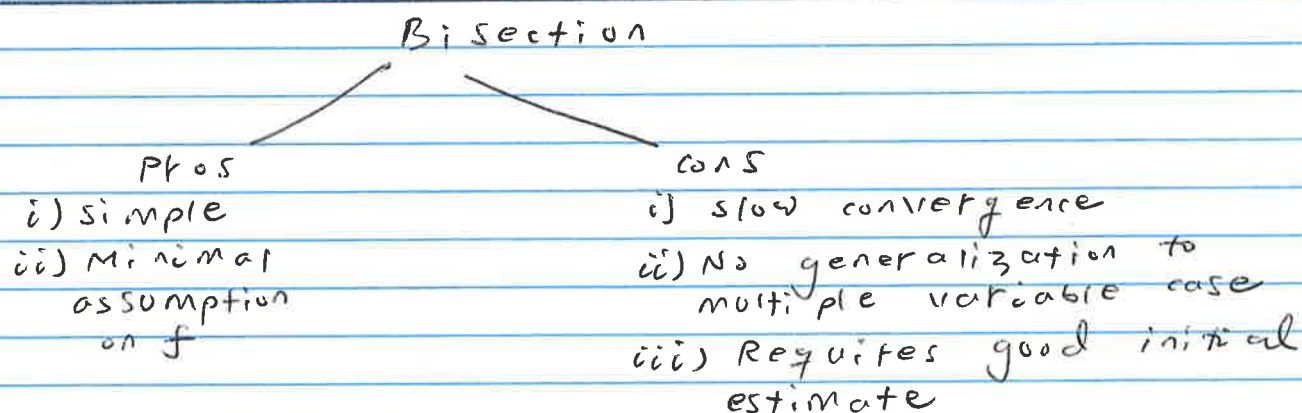 Bisection
Pros
i) simple
ii) Minimal
assumption
on f
cons
i) slow convergence
ii) No generalization to
multiple variable case
iii) Requires good initial
estimate